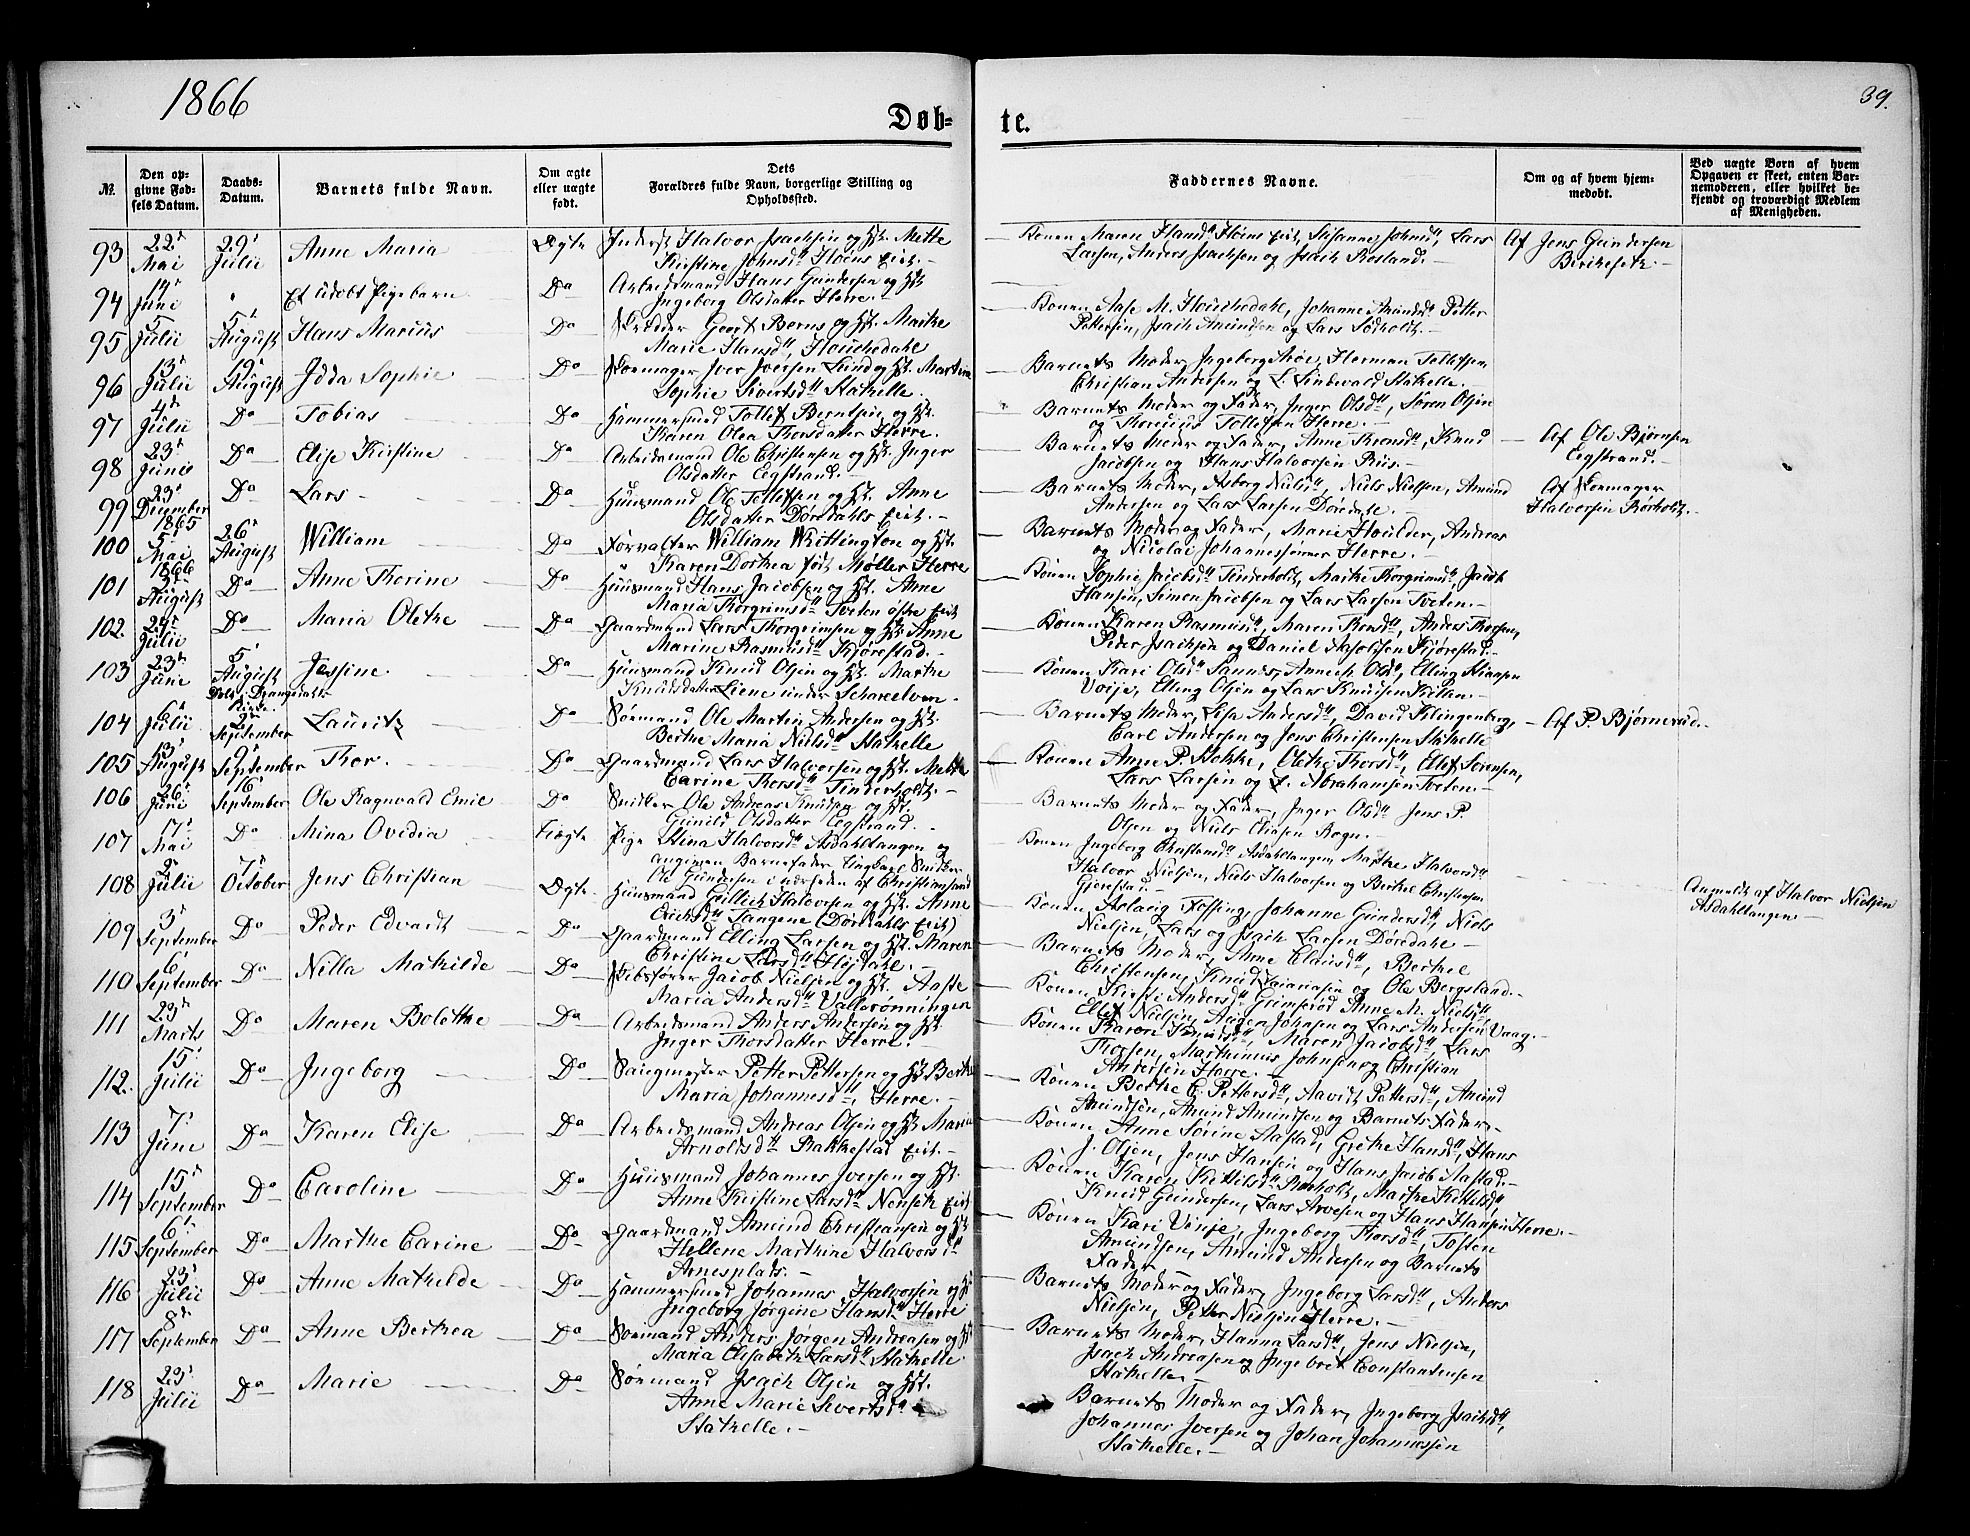 1866
39.
Døb-
te.
№.
Den op-
givne Fød-
sels Datum.
Daabs-
Datum.
Barnets fulde Navn.
Om ægte
eller uægte
født.
Dets
Forældres fulde Navn, borgerlige Stilling og
Opholdssted.
Faddernes Navne.
Om og af hvem hjem-
medøbt.
Ved uægte Born af hvem
Opgaven er skeet, enten Bar-
nemoderen, eller hvilket be-
kjendt og troværdigt Medlem
af Menigheden.
93 22' Mai 29' Julii Anne Maria Ægte Inderst Halvor Isachsen og Hst. Mette
Kristine Johnsd. Høens Eie.
Konen Maren Hansd. Høens Eie, Susanne Johnsd., Lars
Larsen, Anders Isachsen og Isach Rosland.
Af Jens Gundersen
Birkesete.
94 14' Juni Et udøbt Pigebarn Do Arbeidsmand Hans Gundersen og Hst.
Ingeborg Olsdatter Herre.
95 5' Julii 5' August Hans Marius Do Skrædder Geert Berns og Hst. Marthe
Marie Hansd., Houchedahl
Konen Aase M. Houchedahl, Johanne Amunds. Petter
Pettersen, Isach Amundsen og Lars Sødholt.
96 13' Julii 19' August Idda Sophie Do Skomager Iver Iversen Lund og Hst. Martine
Sophie Sivertsd. Stathelle.
Barnets Moder, Ingeborg Moe, Herman Tollefsen
Christian Andersen og L. Lindevald Stathelle.
97 4' Julii Do Tobias Do Hammersmed Tollef Berntsen og Hst.
Karen Olea Thorsdatter Herre.
Barnets Moder og Fader, Inger Olsd., Søren Olsen
og Tollefsen Herre.
98 23' Juni Do Elise Kirstine Do Arbeidsmand Ole Christensen og Hst. Inger
Olsdatter Eegstrand.
Barnets Moder og Fader, Anne Knud
Jacobsen og Hans Halvorsen Riis.
Af Ole Bjørnsen
Eegstrand.
99 23' December 1865 Do Lars Do Huusmand Ole Tollefsen og Hst. Anne
Olsdatter Dørdahls Eie.
Barnets Moder, Asborg Nilsd., Niels Nielsen, Amund
Andersen og Lars Larsen Dørdahl.
Af Skomager
Halvorsen Rørholt.
100 5' Mai 1866 26' August William Do Forvalter William Whittington og Hst.
Karen Dorthea født Møller Herre
Barnets Moder og Fader, Marie Houlder, Andreas
og Nicolai Johannessønner Herre.
101 August Do Anne Thorine Do Huusmand Hans Jacobsen og Hst. Anne
Maria Thorgrimsd. Tveten østre Eie
Konen Sophie Jacobsd. Tinderholt, Marthe Thorgrimsd., Jacob
Hansen, Simon Jacobsen og Lars Larsen Tveten.
102. 29' Julii Do Maria Olethe Do Gaardmand Lars Thorgrimsen og Hst. Anne
Marine Rasmusd. Kjørestad.
Konen Karen Rasmusd., Maren Thorsd., Anders Thorsen,
Peder Isachsen og Daniel Kjørestad.
103 23' Juni 5' August Døbt i Drangedals Kirke. Jossine Do Huusmand Knud Olsen og Hst. Marthe
Knudsdatter Liene under
Konen Kari Olsd. Sannes, Anne M. Olsd., Elling
Elling Olsen og Lars Knudsen
104 6' Julii 2' September Lauritz Do Sømand Ole Martin Andersen og Hst.
Berthe Maria Nielsd. Stathelle
Barnets Moder, Lise Andersd., David Klingenberg,
Carl Andersen og Jens Christensen Stathelle
Af P. Bjørnerud.
105 13' August 9' September Thor Do Gaardmand Lars Halvorsen og Hst. Mette
Carine Thorsd. Tinderholt.
Konen Anne P. Stokke, Olethe Thorsd., Ellef Sørensen,
Lars Larsen og Abrahamsen Tveten.
106 26' Juni 16' September Ole Ragnvald Emil Do Snidker Ole Andreas Knudsen og Hst.
Gunild Olsdatter Eegstrand.
Barnets Moder og Fader, Inger Olsd. Jens P.
Olsen og Niels Eliasen Rogn.
107 17' Mai Do Mina Ovidia Uægte Pige Stina Halvorsd. Asdahltangen og
angiven Barnefader Ungkarl Snidker
Ole Gundersen i Nærheden af Christiansand
Konen Ingeborg Christensd. Asdahltangen, Marthe Halvorsd.
Halvor Nielsen, Niels Halvorsen og Berthel Christensen
Gjerestad.
Anmeldt af Halvor Nielsen
Asdahltangen
108 2' Julii 7' October Jens Christian Ægte Huusmand Gullick Halvorsen og Hst. Anne
Erichsd. Tangene (Dørdahls Eie)
Konen Aslaug Fossing, Johanne Gundersd., Niels
Nielsen, Lars og Isach Larsen Dørdahl
109 3' September Do Peder Edvardt Do Gaardmand Elling Larsen og Hst. Maren
Christine Larsd. Højdahl.
Barnets Moder, Anne Clausd., Berthel
Christensen, Knud Zakariasen og Ole Bergsland.
110 6' September Do Nilla Mathilde Do Skibsfører Jacob Nielsen og Hst. Aaste
Maria Andersd. Valterønningen
Konen Kirsti Andersd. Grimserød Anne M. Nielsd.,
Ellef Nielsen, Aagen Johnsen og Lars Andersen Vaag.
111 23' Marts Do Maren Bolethe Do Arbeidsmand Anders Andersen og Hst.
Inger Thorsdatter Herre.
Konen Karen Knudsd., Maren Jacobsd., Lars
Thorsen, Marthinus Johnsen og Christian
Andersen Herre.
112. 15' Julii Do Ingeborg Do Saugmester Petter Pettersen og Hst. Berthe
Maria Johannesd., Herre.
Konen Berthe C. Pettersd., Navidt Pettersd., Amund
Amundsen, Amund Amundsen og Barnets Fader.
113 7' Juni Do Karen Elise Do Arbeidsmand Andreas Olsen og Hst. Maria
Arnoldsd. Rakkestad Eie.
Konen Anne Sørine Aastad, Grethe Hansd., Hans
J. Olsen, Jens Hansen og Hans Jacob Aastad.
114 15' September Do Caroline Do Huusmand Johannes Iversen og Hst.
Anne Kirstine Larsd. Nenseth Eie
Konen Karen Kittilsd. Rørholt, Marthe Kittilsd.,
Knud Gundersen, Lars Arvesen og Hans Hansen Herre.
115 6' September Do Marthe Carine Do Gaardmand Amund Christiansen og Hst.
Hellene Marthine Halvorsd.
Arnesplads.
Konen Kari Vinje, Ingeborg Thorsd., Tosten
Amundsen, Amund Andersen og Barnets
Fader
116 23' Julii Do Anne Mathilde Do Hammersmed Johannes Halvorsen og Hst.
Ingeborg Jørgine Hansd. Herre
Barnets Moder og Fader, Ingeborg Larsd., Anders
Nielsen, Petter Nielsen Herre.
117 8' September Do Anne Berthea Do Sømand Anders Jørgen Andreasen og Hst.
Maria Elisabeth Larsd. Stathelle.
Barnets Moder, Hanna Larsd., Jens Nielsen,
Isach Andreasen og Ingebret Constantinsen
Stathelle.
118 23' Julii Do Marie Do Sømand Isach Olsen og Hst.
Anne Marie Sivertsd.
Stathelle.
Barnets Moder og Fader, Ingeborg Isachsd.,
Johannes Iversen og Johan Johannessen
Stathelle.